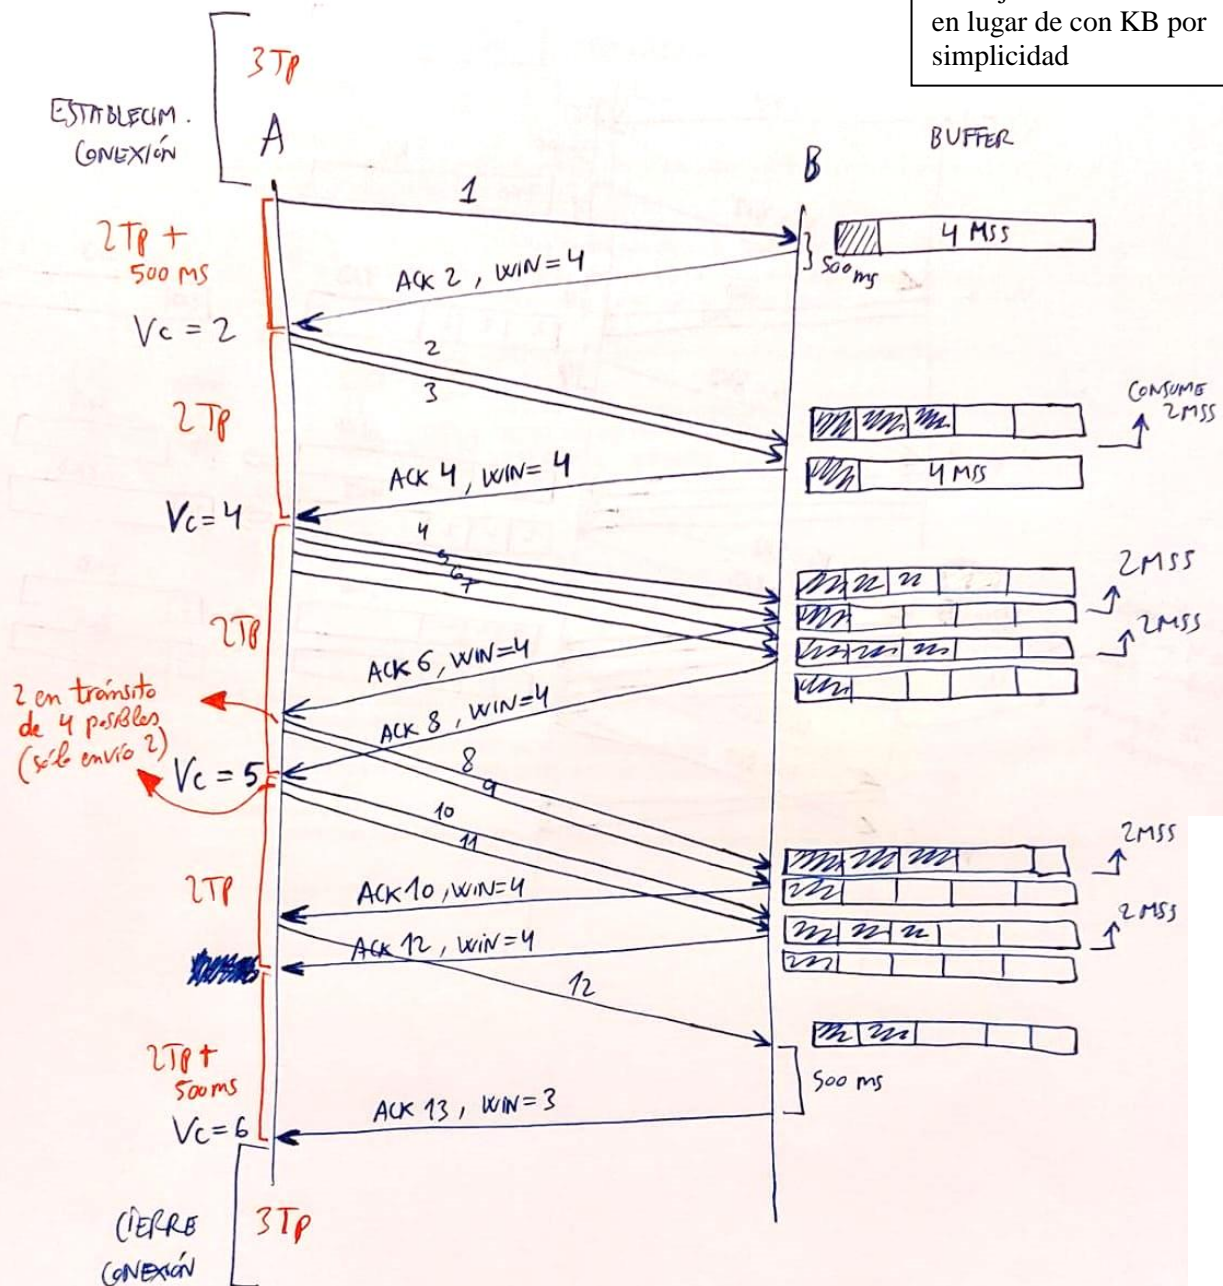 en lugar de con KB por
simplicidad
3Tp
ESTABLECIM.
CONEXIÓN
A
B
BUFFER
1
4 MSS
2Tp +
500 ms
ACK 2, WIN=4
500 ms
Vc = 2
2
3
CONSUME
2MSS
2Tp
ACK 4, WIN=4
4 MSS
Vc=4
4
5
6
7
2MSS
2MSS
2Tp
ACK 6, WIN=4
2 en tránsito
de 4 posibles
(sólo envío 2)
ACK 8, WIN=4
8
9
Vc = 5
10
11
2MSS
2Tp
ACK 10, WIN=4
2MSS
ACK 12, WIN=4
12
2Tp +
500ms
500 ms
ACK 13, WIN=3
Vc=6
CIERRE
CONEXIÓN
3Tp